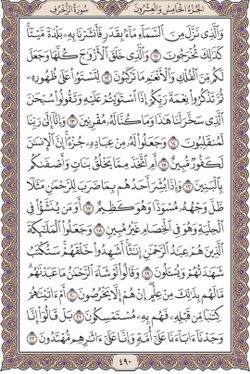 الجزء الخامس والعشرون سورة الزخرف
وَالَّذِي نَزَّلَ مِنَ السَّمَاءِ مَاءً بِقَدَرٍ فَأَنشَرْنَا بِهِ بَلْدَةً مَّيْتًا
كَذَٰلِكَ تُخْرَجُونَ ١١ وَالَّذِي خَلَقَ الْأَزْوَاجَ كُلَّهَا وَجَعَلَ
لَكُم مِّنَ الْفُلْكِ وَالْأَنْعَامِ مَا تَرْكَبُونَ ١٢ لِتَسْتَوُوا عَلَىٰ ظُهُورِهِ
ثُمَّ تَذْكُرُوا نِعْمَةَ رَبِّكُمْ إِذَا اسْتَوَيْتُمْ عَلَيْهِ وَتَقُولُوا سُبْحَانَ
الَّذِي سَخَّرَ لَنَا هَٰذَا وَمَا كُنَّا لَهُ مُقْرِنِينَ ١٣ وَإِنَّا إِلَىٰ رَبِّنَا
لَمُنقَلِبُونَ ١٤ وَجَعَلُوا لَهُ مِنْ عِبَادِهِ جُزْءًا إِنَّ الْإِنسَانَ
لَكَفُورٌ مُّبِينٌ ١٥ أَمِ اتَّخَذَ مِمَّا يَخْلُقُ بَنَاتٍ وَأَصْفَاكُم
بِالْبَنِينَ ١٦ وَإِذَا بُشِّرَ أَحَدُهُم بِمَا ضَرَبَ لِلرَّحْمَٰنِ مَثَلًا
ظَلَّ وَجْهُهُ مُسْوَدًّا وَهُوَ كَظِيمٌ ١٧ أَوَمَن يُنَشَّأُ فِي
الْحِلْيَةِ وَهُوَ فِي الْخِصَامِ غَيْرُ مُبِينٍ ١٨ وَجَعَلُوا الْمَلَائِكَةَ
الَّذِينَ هُمْ عِبَادُ الرَّحْمَٰنِ إِنَاثًا أَشَهِدُوا خَلْقَهُمْ سَتُكْتَبُ
شَهَادَتُهُمْ وَيُسْأَلُونَ ١٩ وَقَالُوا لَوْ شَاءَ الرَّحْمَٰنُ مَا عَبَدْنَاهُم
مَّا لَهُم بِذَٰلِكَ مِنْ عِلْمٍ إِنْ هُمْ إِلَّا يَخْرُصُونَ ٢٠ أَمْ آتَيْنَاهُمْ
كِتَابًا مِّن قَبْلِهِ فَهُم بِهِ مُسْتَمْسِكُونَ ٢١ بَلْ قَالُوا إِنَّا
وَجَدْنَا آبَاءَنَا عَلَىٰ أُمَّةٍ وَإِنَّا عَلَىٰ آثَارِهِم مُّهْتَدُونَ ٢٢
٤٩٠